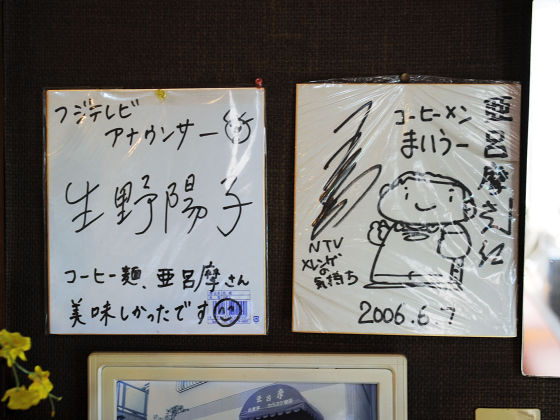 フジテレビ
アナウンサー
生野陽子
コーヒー麺、亜呂摩さん
美味しかったです
コーヒーメン
まいうー
亜呂摩さん江
NTV
メレンゲの
気持ち
2006.6.7
亜呂摩